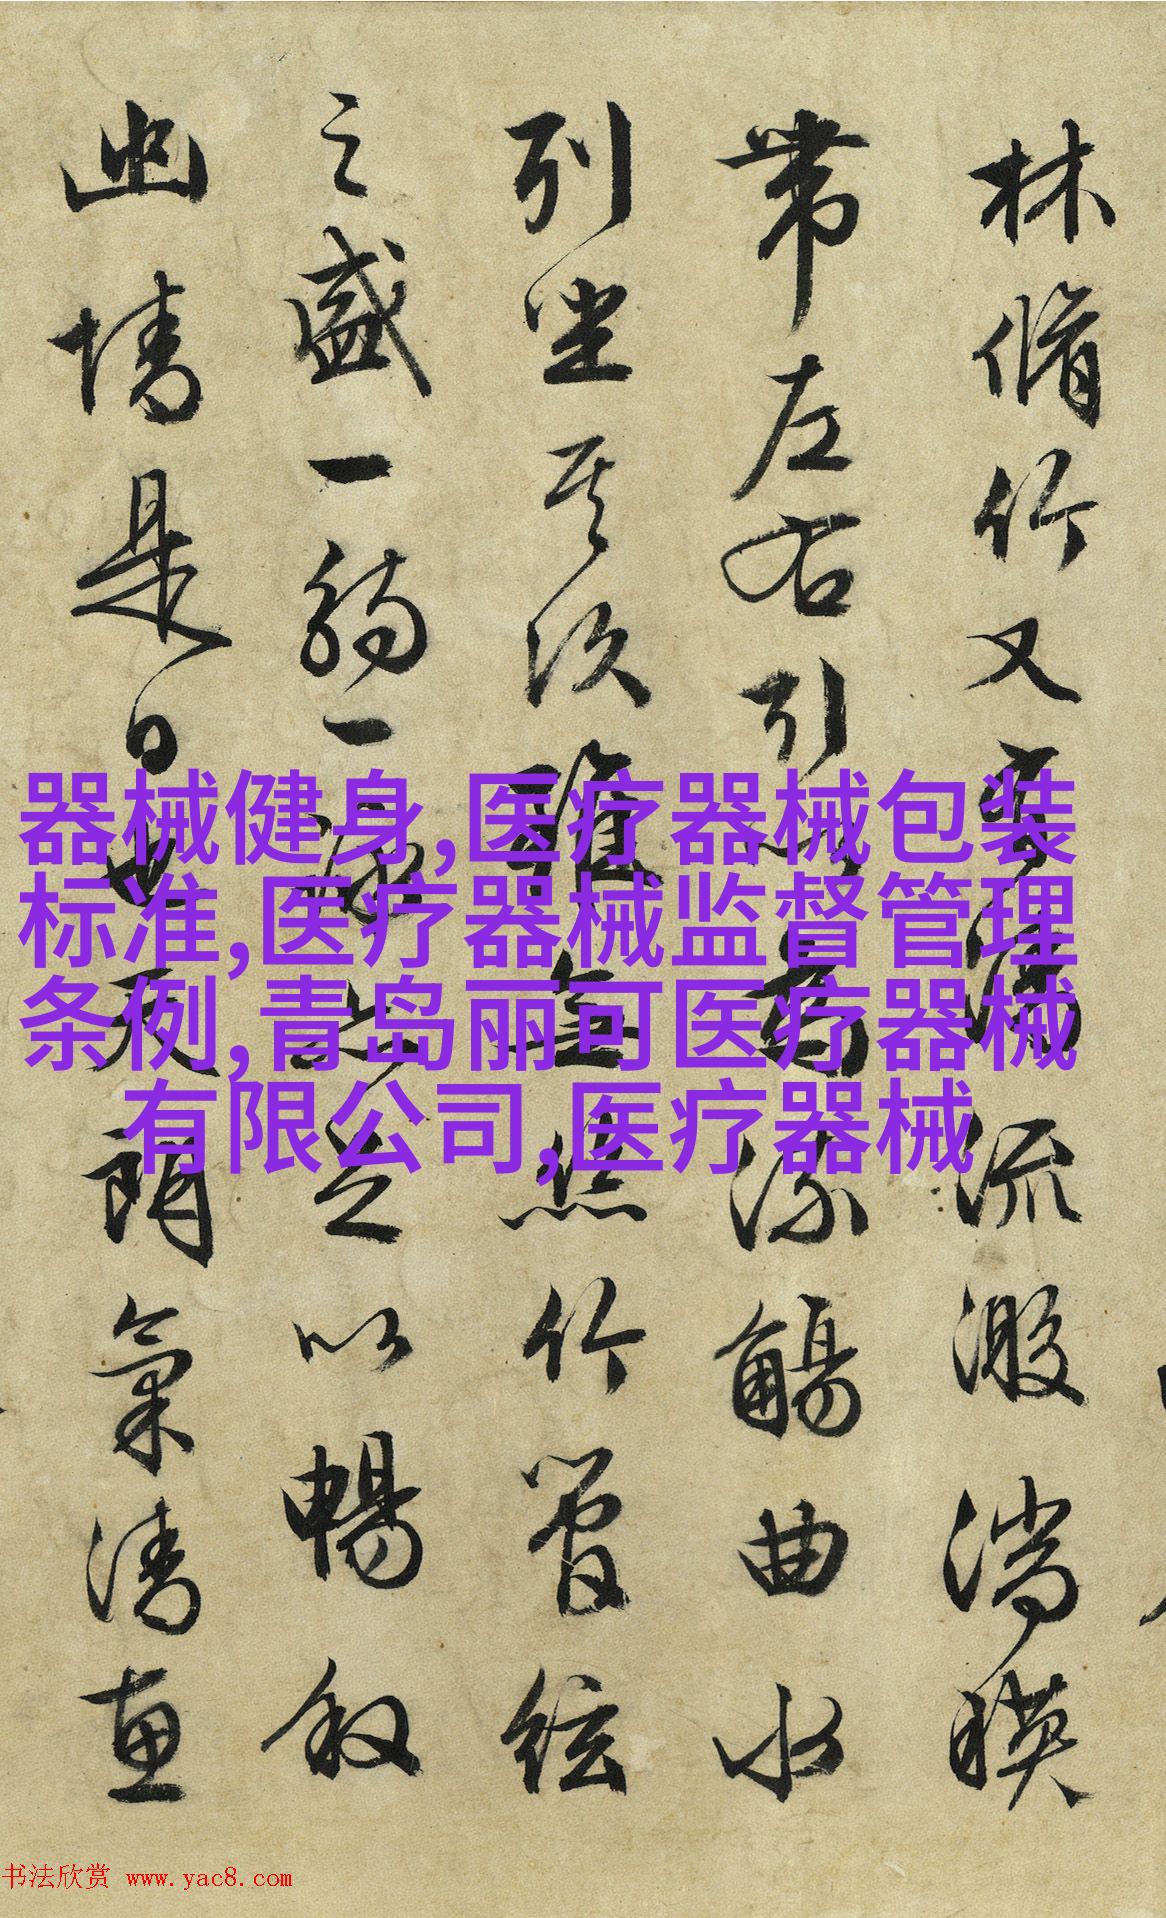 林脩竹又有清流激湍暎
帶左右引以為流觴曲水
列坐其次雖無絲竹管絃
之盛一觴一詠亦足以暢敘
幽情是日也天朗氣清惠
器械健身,医疗器械包装
标准,医疗器械监督管理
条例,青岛丽可医疗器械
有限公司,医疗器械
书法欣赏 www.yac8.com